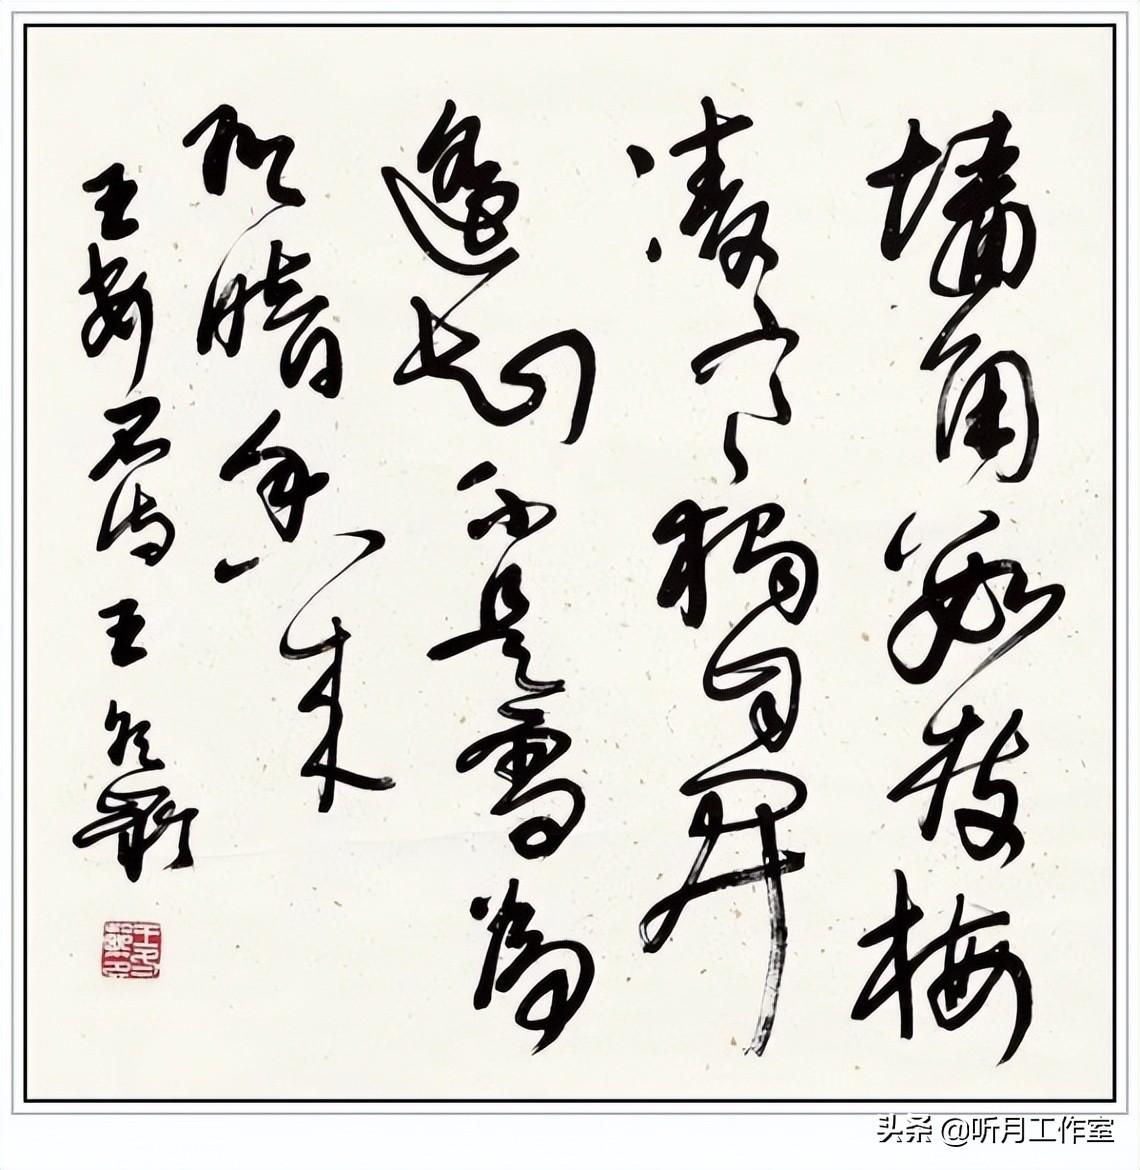 墙角數枝梅
凌寒獨自開
遥知不是雪為
有暗香来
王安石诗 王冬龄
头条 @听月工作室